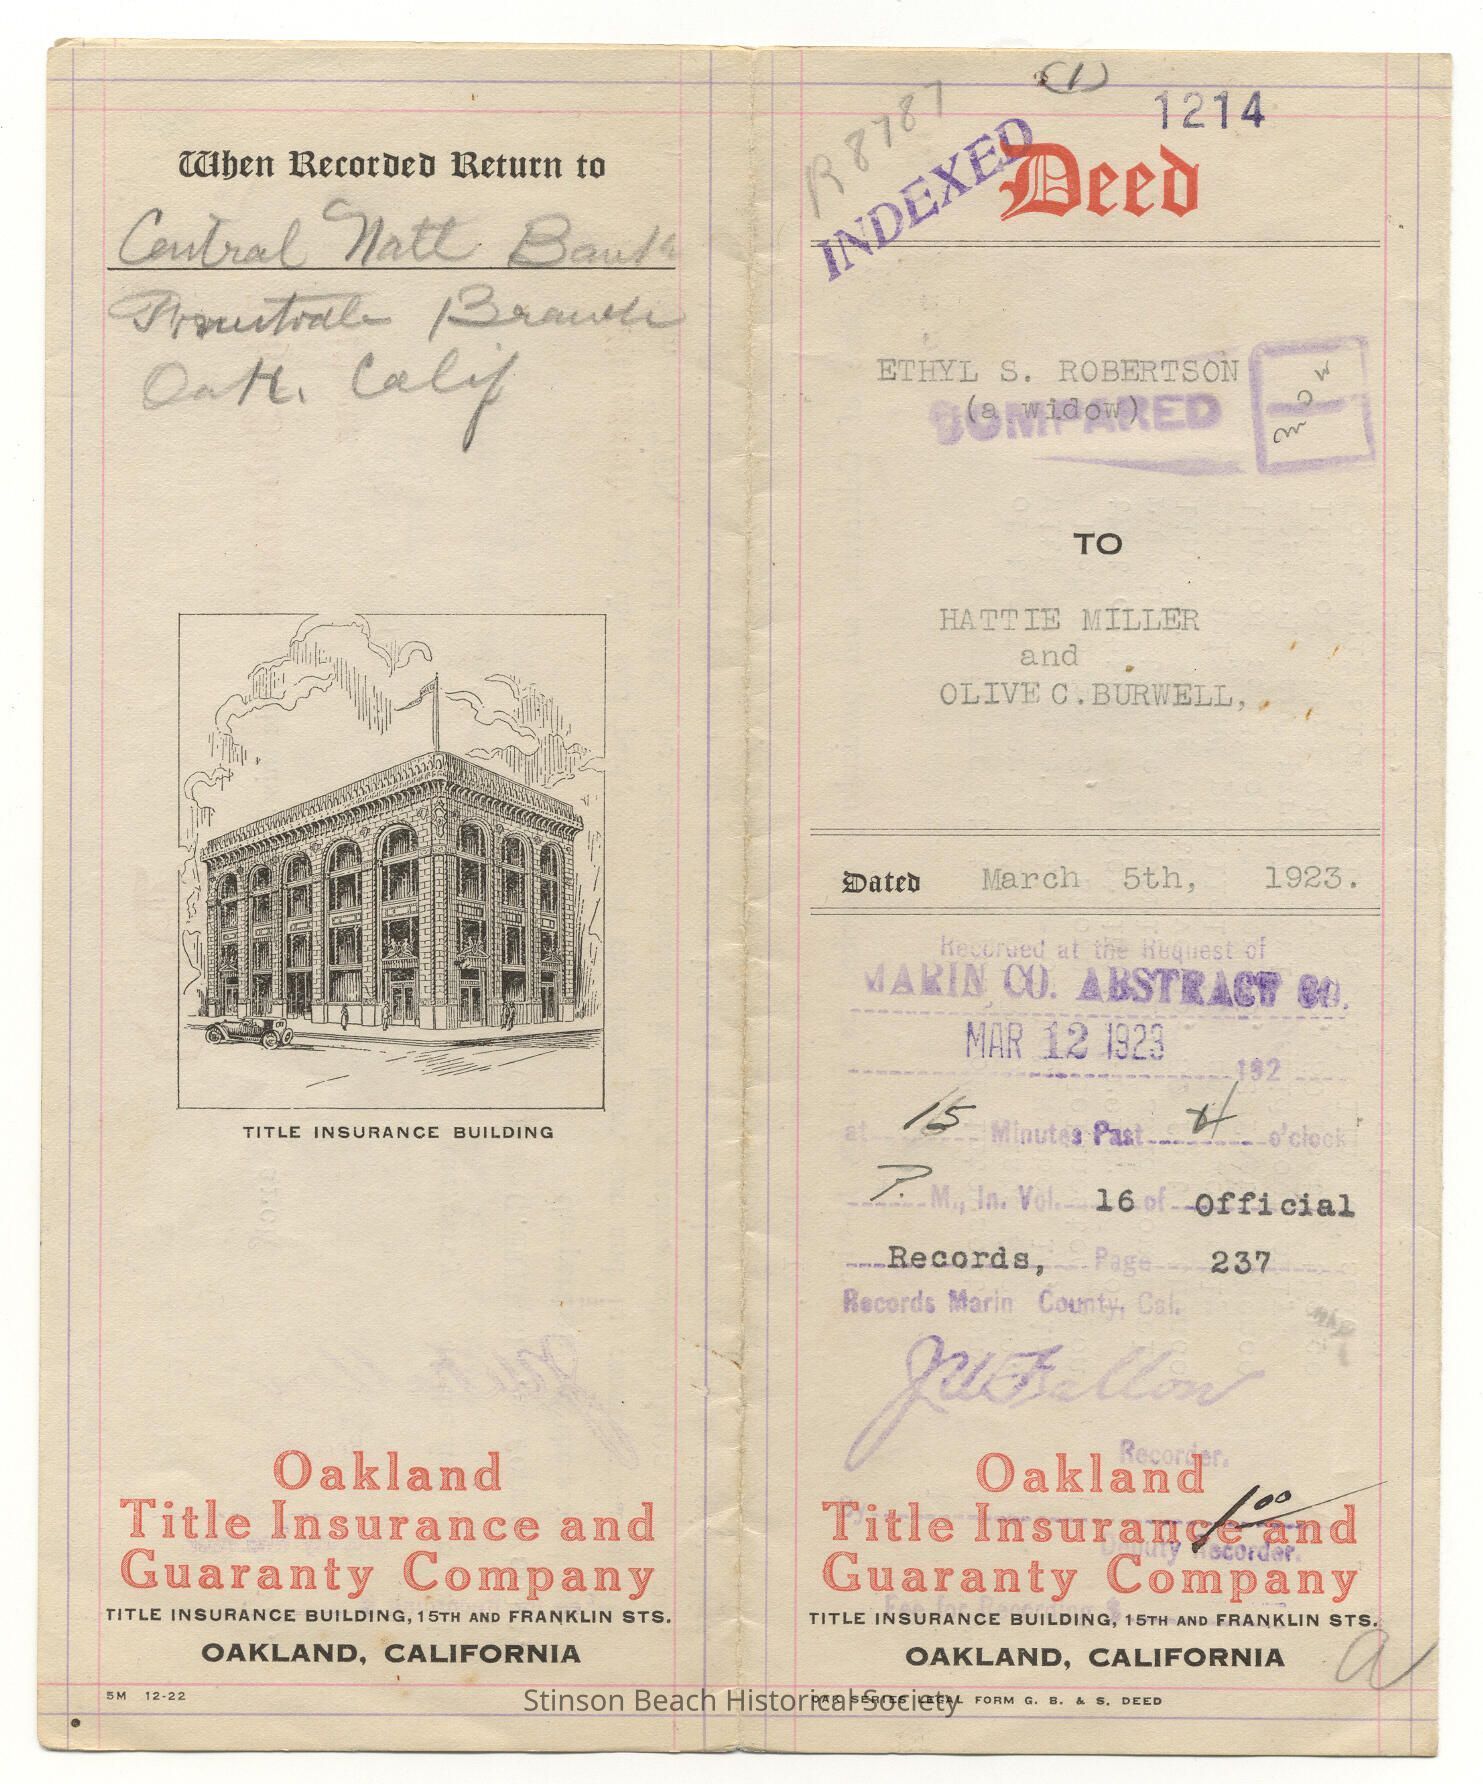 When Recorded Return to
Central Natl Bank
Fruitvale Branch
Oak. Calif
TITLE INSURANCE BUILDING
Oakland
Title Insurance and
Guaranty Company
TITLE INSURANCE BUILDING, 15TH AND FRANKLIN STS.
OAKLAND, CALIFORNIA
5M 12-22
(1)
1214
R8787
INDEXED
Deed
ETHYL S. ROBERTSON
(a widow)
COMPARED
TO
HATTIE MILLER
and
OLIVE C. BURWELL,
Dated March 5th, 1923.
Recorded at the Request of
MARIN CO. ABSTRACT CO.
MAR 12 1923
192
at 15 Minutes Past 4 o'clock
P. M., In. Vol. 16 of Official
Records, Page 237
Records Marin County, Cal.
Recorder.
Oakland
By
1.00
Title Insurance and
Deputy Recorder.
Guaranty Company
Fee for Recording $
TITLE INSURANCE BUILDING, 15TH AND FRANKLIN STS.
OAKLAND, CALIFORNIA
a
OAK SERIES LEGAL FORM G. B. & S. DEED
Stinson Beach Historical Society